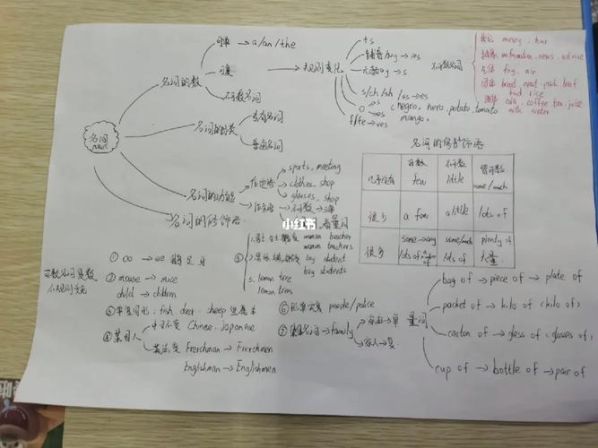 名词
noun
名词的数
单数 → a/an/the
可数
不可数名词
规则变化
+s
辅音+y → ies
元音+y → s
s/ch/sh/x → es
o → s
es (negro, hero, potato, tomato
mango.
f/fe → ves
不可数名词
money, hair
information, news, advice
fog, air
bread, meat, pork, beef
rice
cola, coffee, tea, juice
milk, water
专有名词
普通名词
名词的功能
作定语
sports meeting
clothes shop
glasses shop
作主语
名词的修饰语
小红书
量词
名词的修饰语
可数
few
不可数
little
some/much
很少
a few
a little
lots of
很多
some
lots of
some/much
lots of
plenty of
大量
可数名词复数
不规则变化
① oo → ee
② mouse → mice
child → children
③ 单复同形: fish deer sheep
Chinese, Japanese
④ 某国人
Frenchman → Frenchmen
Englishman → Englishmen
man teacher
men teachers
boy student
boy students
lemon tree
lemon trees
people/police
family
量词
bag of → piece of → plate of
packet of → kilo of (kilos of)
carton of → glass of (glasses of)
cup of → bottle of → pair of